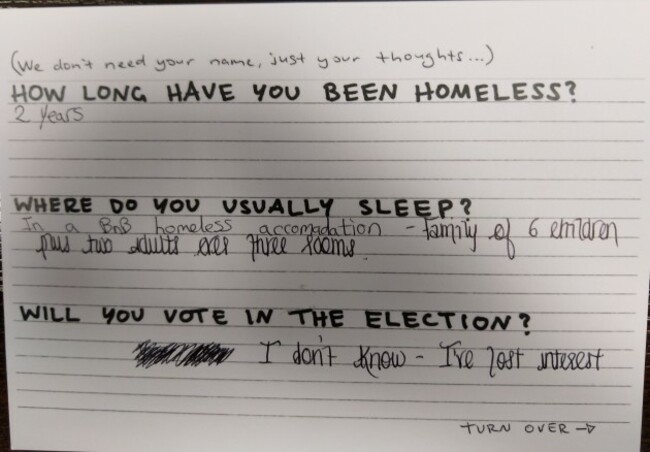 (We don't need your name, just your thoughts...)
HOW LONG HAVE YOU BEEN HOMELESS?
2 years
WHERE DO YOU USUALLY SLEEP?
In a BnB homeless accomadation - family of 6 children
plus two adults over three rooms.
WILL YOU VOTE IN THE ELECTION?
I don't know - I've lost interest
TURN OVER →